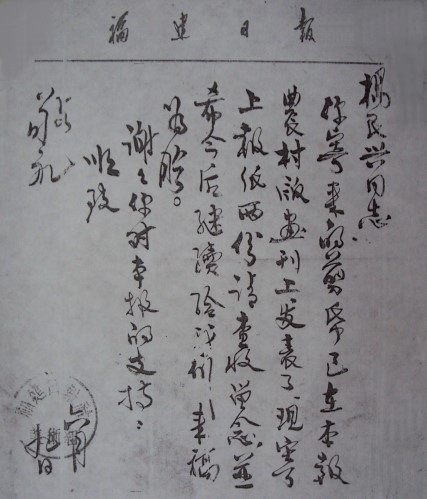 福建日報
杨民兴同志
你寄来的剪纸已在本报
農村版画刊上发表了，现寄
上报纸两份请查收留念。並
希今后继续给我们来稿
为盼。
谢谢你对本报的支持！
顺致
敬礼
六月